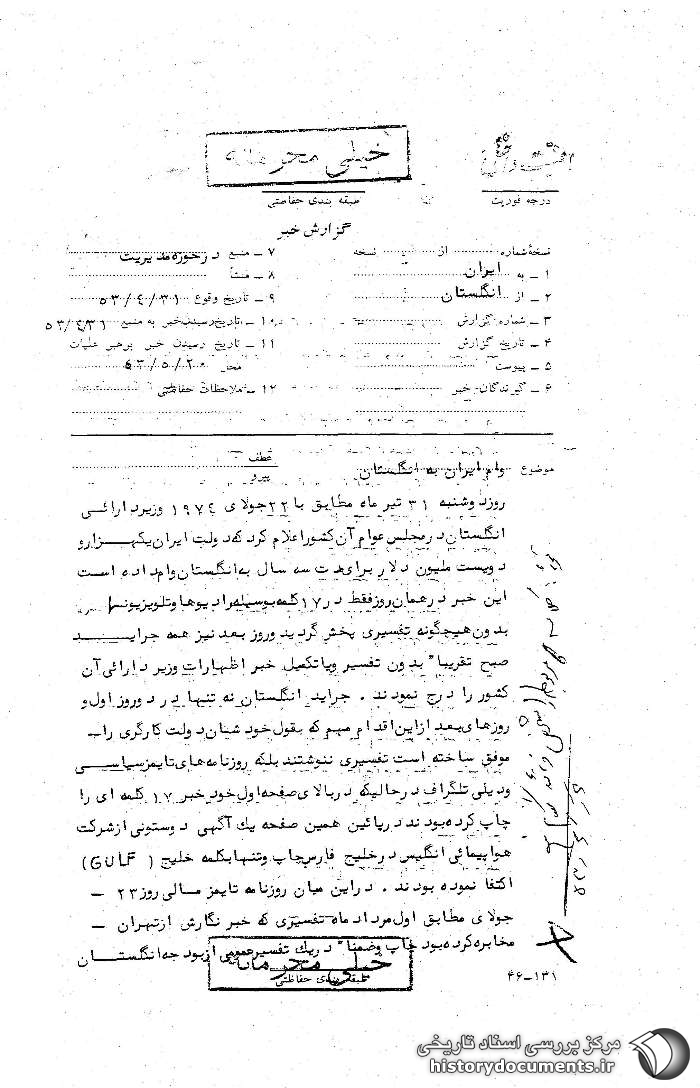 خیلی محرمانه
درجه فوریت
طبقه بندی حفاصتی
گزارش خبر
نسخهٔ شماره از نسخه
۱ ـ به ایران
۲ ـ از انگلستان
۳ ـ شماره گزارش
۴ ـ تاریخ گزارش
۵ ـ پیوست
۶ ـ گیرندگان خبر
۷ ـ منبع در حوزه مدیریت
۸ ـ منشأ
۹ ـ تاریخ وقوع ۵۳/٤/۳۱
۱۰ ـ تاریخ رسیدن خبر به منبع ۵۳/٤/۳۱
۱۱ ـ تاریخ رسیدن خبر برهبر عملیات
محل ۵/۲۰
۱۲ ـ ملاحظات حفاظتی
موضوع وام ایران به انگلستان
عطف
پیرو
روز دوشنبه ۳۱ تیر ماه مطابق با ۲۲ جولای ۱۹۷٤ وزیر دارائی
انگلستان در مجلس عوام آن کشور اعلام کرد که دولت ایران یکهزار و
دویست ملیون دلار برای مدت سه سال به انگلستان وام داده است
این خبر در همان روز فقط در ۱۷ کلمه بوسیله رادیوها و تلویزیونها
بدون هیچگونه تفسیری پخش گردید و روز بعد نیز همه جراید
صبح تقریبا" بدون تفسیر و یا تکمیل خبر اظهارات وزیر دارائی آن
کشور را درج نمودند . جراید انگلستان نه تنها در دو روز اول و
روزهای بعد از این اقدام مهم که بقول خودشان دولت کارگری را ـ
موفق ساخته است تفسیری ننوشتند بلکه روزنامه های تایمز سیاسی
و دیلی تلگراف در حالیکه در بالای صفحه اول خود خبر ۱۷ کلمه ای را
چاپ کرده بودند در پائین همین صفحه یك آگهی دوستونی از شرکت
هواپیمائی انگلیس در خلیج فارس چاپ و تنها بکلمه خلیج ( GULF )
اکتفا نموده بودند . در این میان روزنامه تایمز مالی روز ۲۳ ـ
جولای مطابق اول مرداد ماه تفسیری که خبر نگارش از تهران ـ
مخابره کرده بود چاپ و ضمنا" در یك تفسیر عمومی از بودجه انگلستان
خیلی محرمانه
طبقه بندی حفاظتی
۴۶-۱۳۱
مرکز بررسی اسناد تاریخی
historydocuments.ir